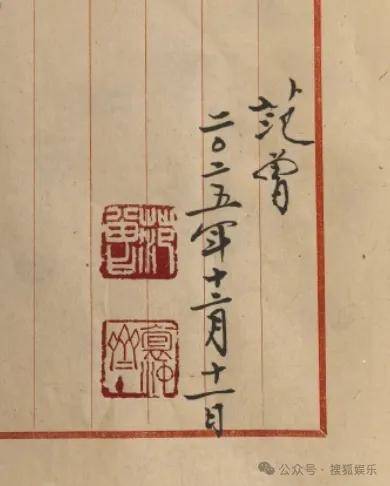 范曾
二〇二五年十二月十一日
范曾
公众号·搜狐娱乐